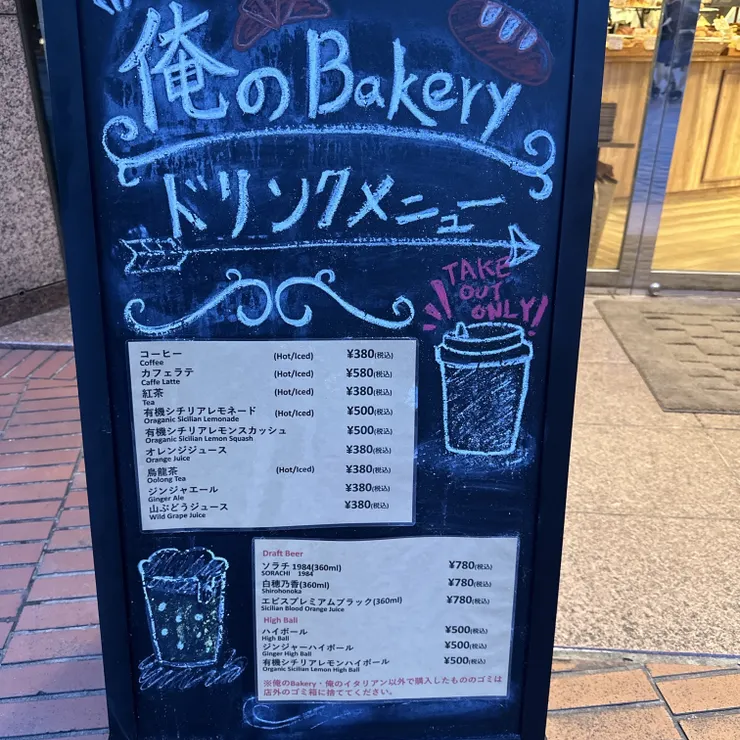 俺のBakery
ドリンクメニュー
TAKE
OUT
ONLY!
コーヒー (Hot/Iced) ¥380(税込)
Coffee
カフェラテ (Hot/Iced) ¥580(税込)
Caffe Latte
紅茶 (Hot/Iced) ¥380(税込)
Tea
有機シチリアレモネード (Hot/Iced) ¥500(税込)
Oraganic Sicilian Lemonade
有機シチリアレモンスカッシュ ¥500(税込)
Oraganic Sicilian Lemon Squash
オレンジジュース ¥380(税込)
Orange Juice
烏龍茶 (Hot/Iced) ¥380(税込)
Oolong Tea
ジンジャエール ¥380(税込)
Ginger Ale
山ぶどうジュース ¥380(税込)
Wild Grape Juice
Draft Beer
ソラチ 1984(360ml) ¥780(税込)
SORACHI 1984
白穂乃香(360ml) ¥780(税込)
Shirohonoka
ヱビスプレミアムブラック(360ml) ¥780(税込)
Sicilian Blood Orange Juice
High Ball
ハイボール ¥500(税込)
High Ball
ジンジャーハイボール ¥500(税込)
Ginger High Ball
有機シチリアレモンハイボール ¥500(税込)
Organic Sicilian Lemon High Ball
※俺のBakery・俺のイタリアン以外で購入したもののゴミは
店外のゴミ箱に捨ててください。